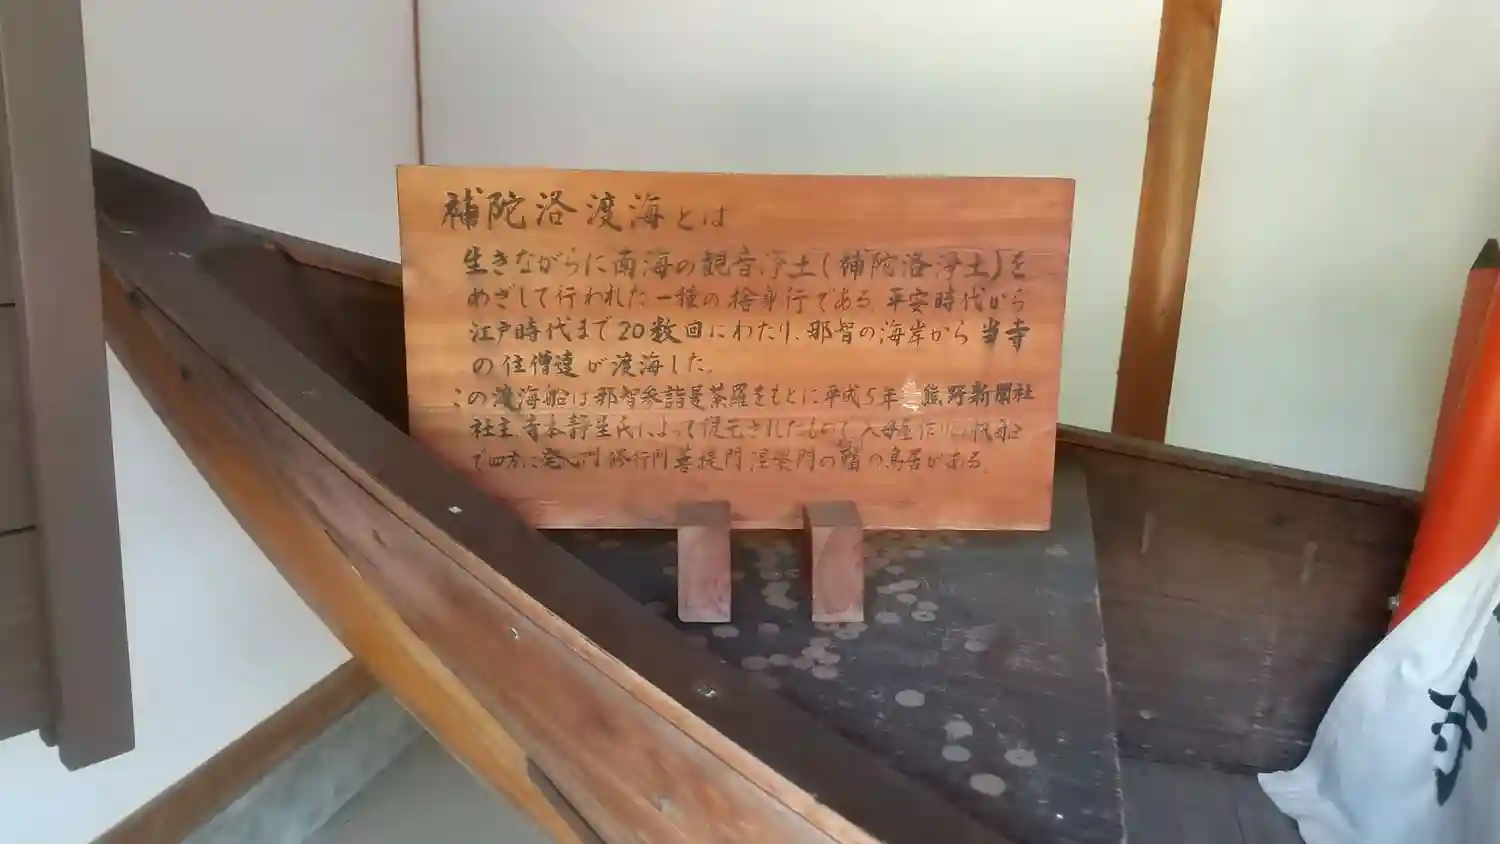 補陀洛渡海とは
生きながらに南海の観音浄土(補陀洛浄土)を
めざして行われた一種の捨身行である。平安時代から
江戸時代まで20数回にわたり、那智の海岸から当寺
の住僧達が渡海した。
この渡海船は那智参詣曼荼羅をもとに平成5年 熊野新聞社
社主、寺本静生氏によって復元されたもので、入母屋作りの帆船
で四方に発心門修行門菩提門涅槃門の の鳥居がある。